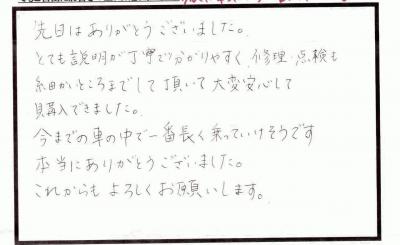 先日はありがとうございました。
とても説明が丁寧で分かりやすく、修理・点検も
細かいところまでして頂いて大変安心して
購入できました。
今までの車の中で一番長く乗っていけそうです
本当にありがとうございました。
これからもよろしくお願いします。